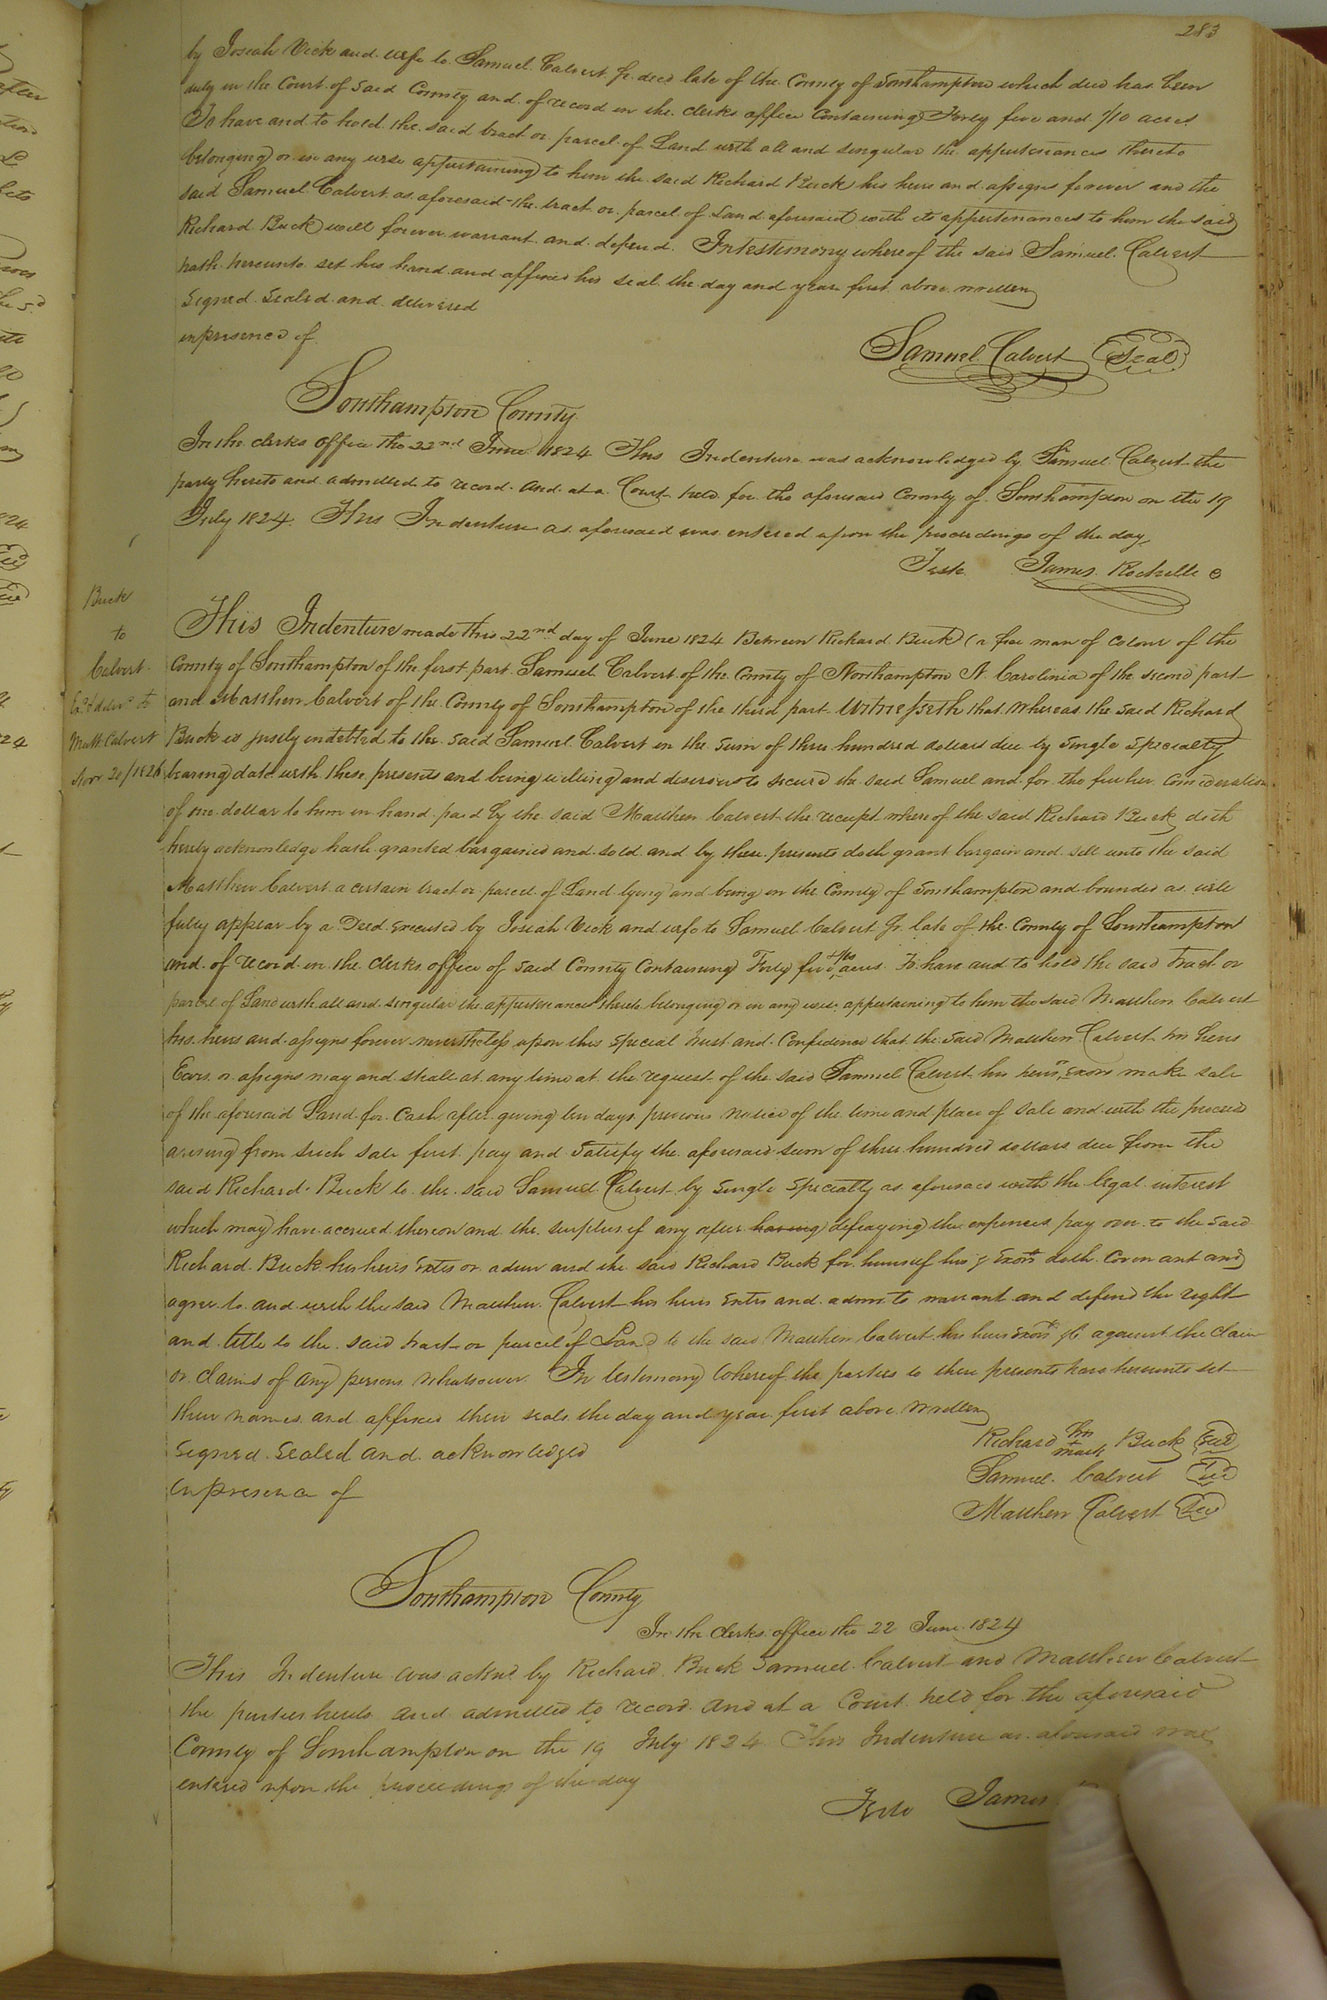 283
by Josiah Vick and wife to Samuel Calvert Jr. decd late of the County of Southampton which deed has been
duly in the Court of said County and of record in the clerks office Containing Forty five and 9/10 acres
To have and to hold the said tract or parcel of Land with all and singular the appurtenances thereto
belonging or in any wise appurtaining to him the said Richard Buck his heirs and assigns forever and the
said Samuel Calvert as aforesaid the tract or parcel of Land aforesaid with its appurtenances to him the said
Richard Buck will forever warrant and defend. In testimony whereof the said Samuel Calvert
hath hereunto set his hand and affixed his seal the day and year first above written
Signed Sealed and delivered
in presence of
Samuel Calvert Seal
Southampton County
In the clerks office the 22nd June 1824 This Indenture was acknowledged by Samuel Calvert the
party hereto and admitted to record. And at a Court held for the aforesaid County of Southampton on the 19
July 1824. This Indenture as aforesaid was entered upon the proceedings of the day,
Teste James Rochelle c
Buck
to
Calvert
Exd & delvd to
Matt Calvert
Novr 20/1826
This Indenture made this 22nd day of June 1824 Between Richard Buck (a free man of colour of the
County of Southampton of the first part Samuel Calvert of the County of Northampton N. Carolinia of the second part
and Matthew Calvert of the County of Southampton of the third part Witnesseth that Whereas the said Richard
Buck is justly indetted to the said Samuel Calvert in the sum of three hundred dollars due by Single Specialty
bearing date with these presents and being willing and desirous to secure the said Samuel and for the further Consideration
of one dollar to him in hand paid by the said Matthew Calvert the receipt whereof the said Richard Buck doth
hereby acknowledge hath granted bargained and sold and by these presents doth grant bargain and sell unto the said
Matthew Calvert a certain tract or parcel of Land lying and being in the County of Southampton and bounded as will
fully appear by a Deed executed by Josiah Vick and wife to Samuel Calvert Jr. late of the County of Southampton
and of record in the clerks office of said County Containing Forty five acres To have and to hold the said Tract or
parcel of Land with all and singular the appurtenances thereto belonging or in any wise appurtaining to him the said Matthew Calvert
his heirs and assigns forever nevertheless upon this special trust and Confidence that the said Matthew Calvert his heirs
Exors or assigns may and shall at any time at the request of the said Samuel Calvert his heirs, Exors make sale
of the aforesaid Land for Cash after giving ten days previous notice of the time and place of Sale and with the proceed
arising from such sale first pay and Satisfy the aforesaid sum of three hundred dollars due from the
said Richard Buck to the said Samuel Calvert by Single Specialty as aforesaid with the legal interest
which may have accrued thereon and the surplus if any after having defraying the expences pay over to the said
Richard Buck his heirs Extrs or adm and the said Richard Buck for himself his Exors doth Covenant and
agree to and with the said Matthew Calvert his heirs Extrs and adms to warrant and defend the right
and title to the said tract or parcel of Land to the said Matthew Calvert his heirs Exors &c against the claim
or claims of any persons whatsoever In testimony Whereof the parties to these presents have hereunto set
their names and affixed their seals the day and year first above written
Signed Sealed and acknowledged
in presence of
Richard his + mark Buck Seal
Samuel Calvert Seal
Matthew Calvert Seal
Southampton County
In the Clerks office the 22 June 1824
This Indenture was acknd by Richard Buck Samuel Calvert and Matthew Calvert
the parties hereto and admitted to record and at a Court held for the aforesaid
County of Southampton on the 19 July 1824 This Indenture as aforesaid was
entered upon the proceedings of the day
Teste James